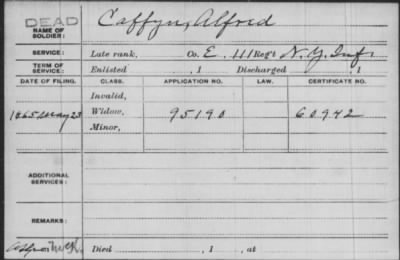 DEAD
NAME OF SOLDIER: Caffyn, Alfred
SERVICE: Late rank, Co. E, 111 Reg't N.Y. Inf.
TERM OF SERVICE: Enlisted , 1 Discharged , 1
DATE OF FILING. CLASS. APPLICATION NO. LAW. CERTIFICATE NO.
Invalid,
1865 May 23 Widow, 95190 60942
Minor,
ADDITIONAL SERVICES:
REMARKS:
Died , 1 , at